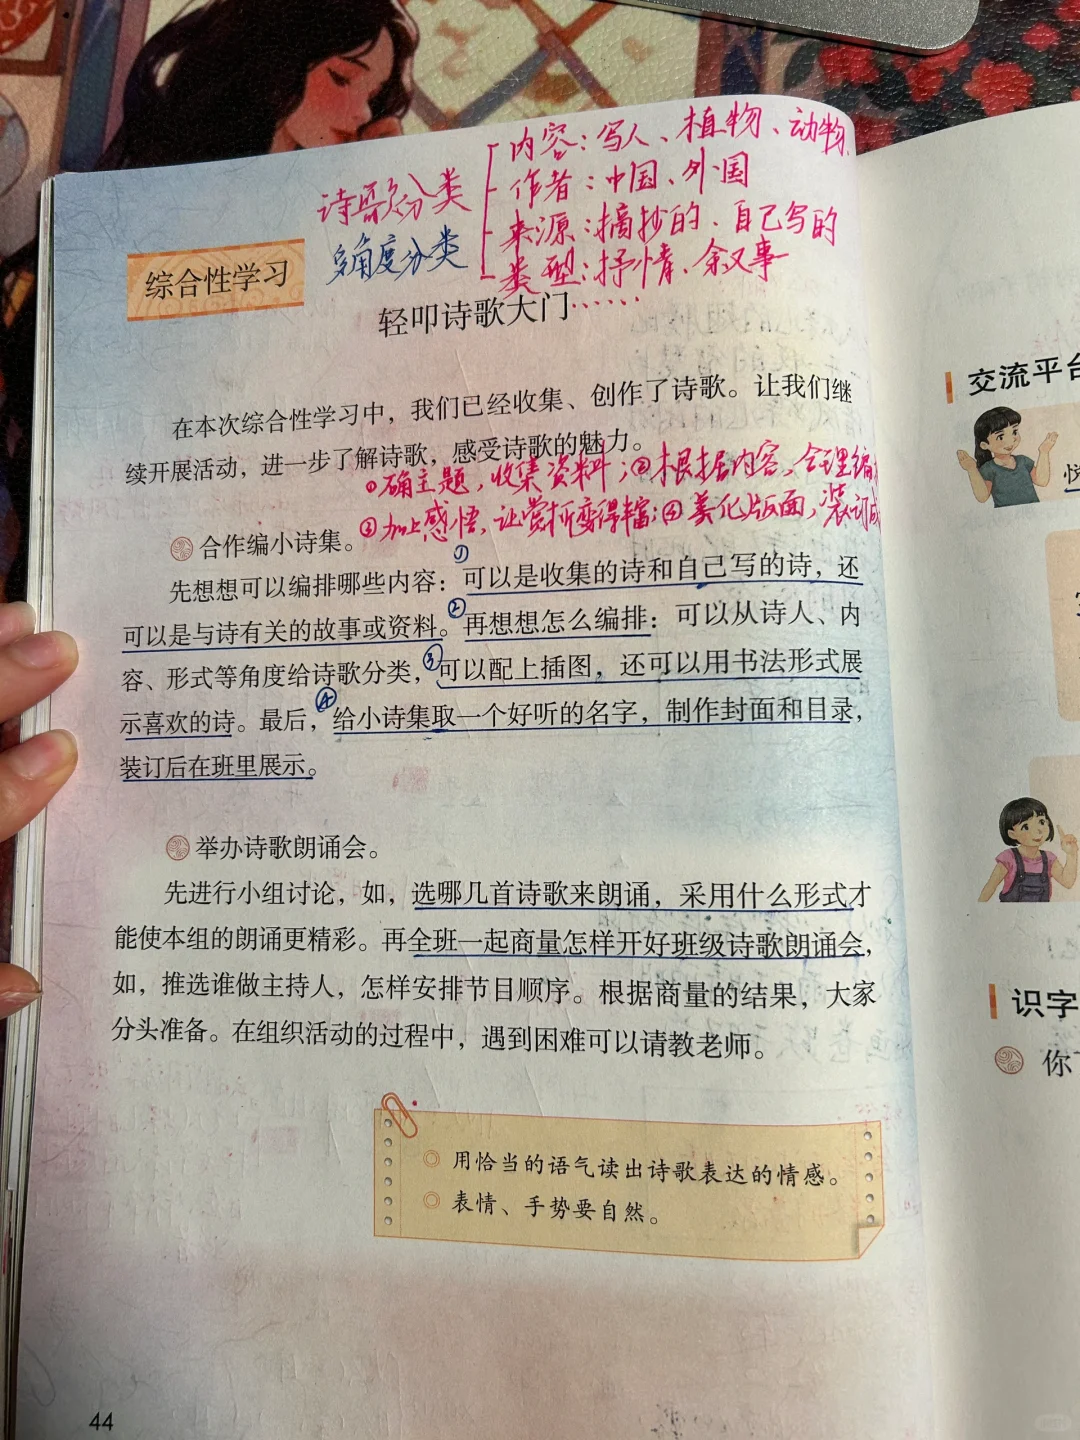 诗歌分类
多角度分类
内容：写人、植物、动物、
作者：中国、外国
来源：摘抄的、自己写的
类型：抒情、叙事
······
综合性学习
轻叩诗歌大门
在本次综合性学习中，我们已经收集、创作了诗歌。让我们继
续开展活动，进一步了解诗歌，感受诗歌的魅力。
①确主题，收集资料；②根据内容，合理编
③加上感悟，让赏析变得丰富；④美化版面，装订成
合作编小诗集。
先想想可以编排哪些内容：①可以是收集的诗和自己写的诗，还
可以是与诗有关的故事或资料。②再想想怎么编排：可以从诗人、内
容、形式等角度给诗歌分类，③可以配上插图，还可以用书法形式展
示喜欢的诗。最后，④给小诗集取一个好听的名字，制作封面和目录，
装订后在班里展示。
举办诗歌朗诵会。
先进行小组讨论，如，选哪几首诗歌来朗诵，采用什么形式才
能使本组的朗诵更精彩。再全班一起商量怎样开好班级诗歌朗诵会，
如，推选谁做主持人，怎样安排节目顺序。根据商量的结果，大家
分头准备。在组织活动的过程中，遇到困难可以请教老师。
用恰当的语气读出诗歌表达的情感。
表情、手势要自然。
44
交流平台
识字
你